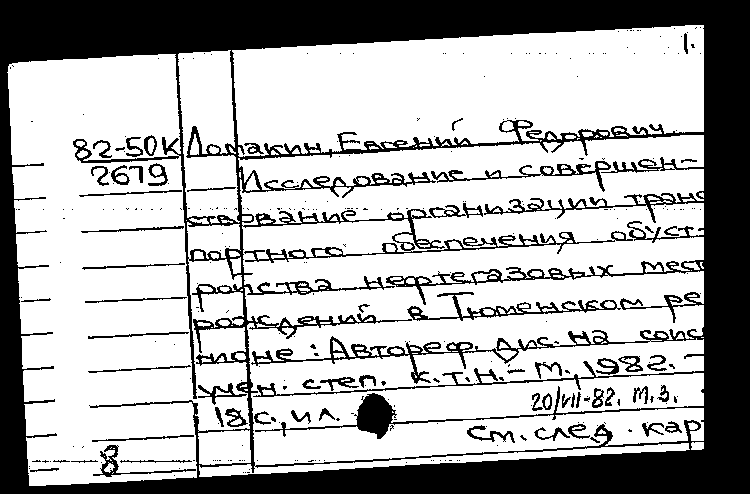 1.
82-50К Ломакин, Евгений Федорович
2679 Исследование и совершен-
ствование организации транс
портного обеспечения обуст-
ройства нефтегазовых мест
рождений в Тюменском ре
гионе: Автореф. дис. на соис
учен. степ. к.т.н. - М., 1982. -
18 с., ил. 20/VII-82. М.З.
8 см. след. кар